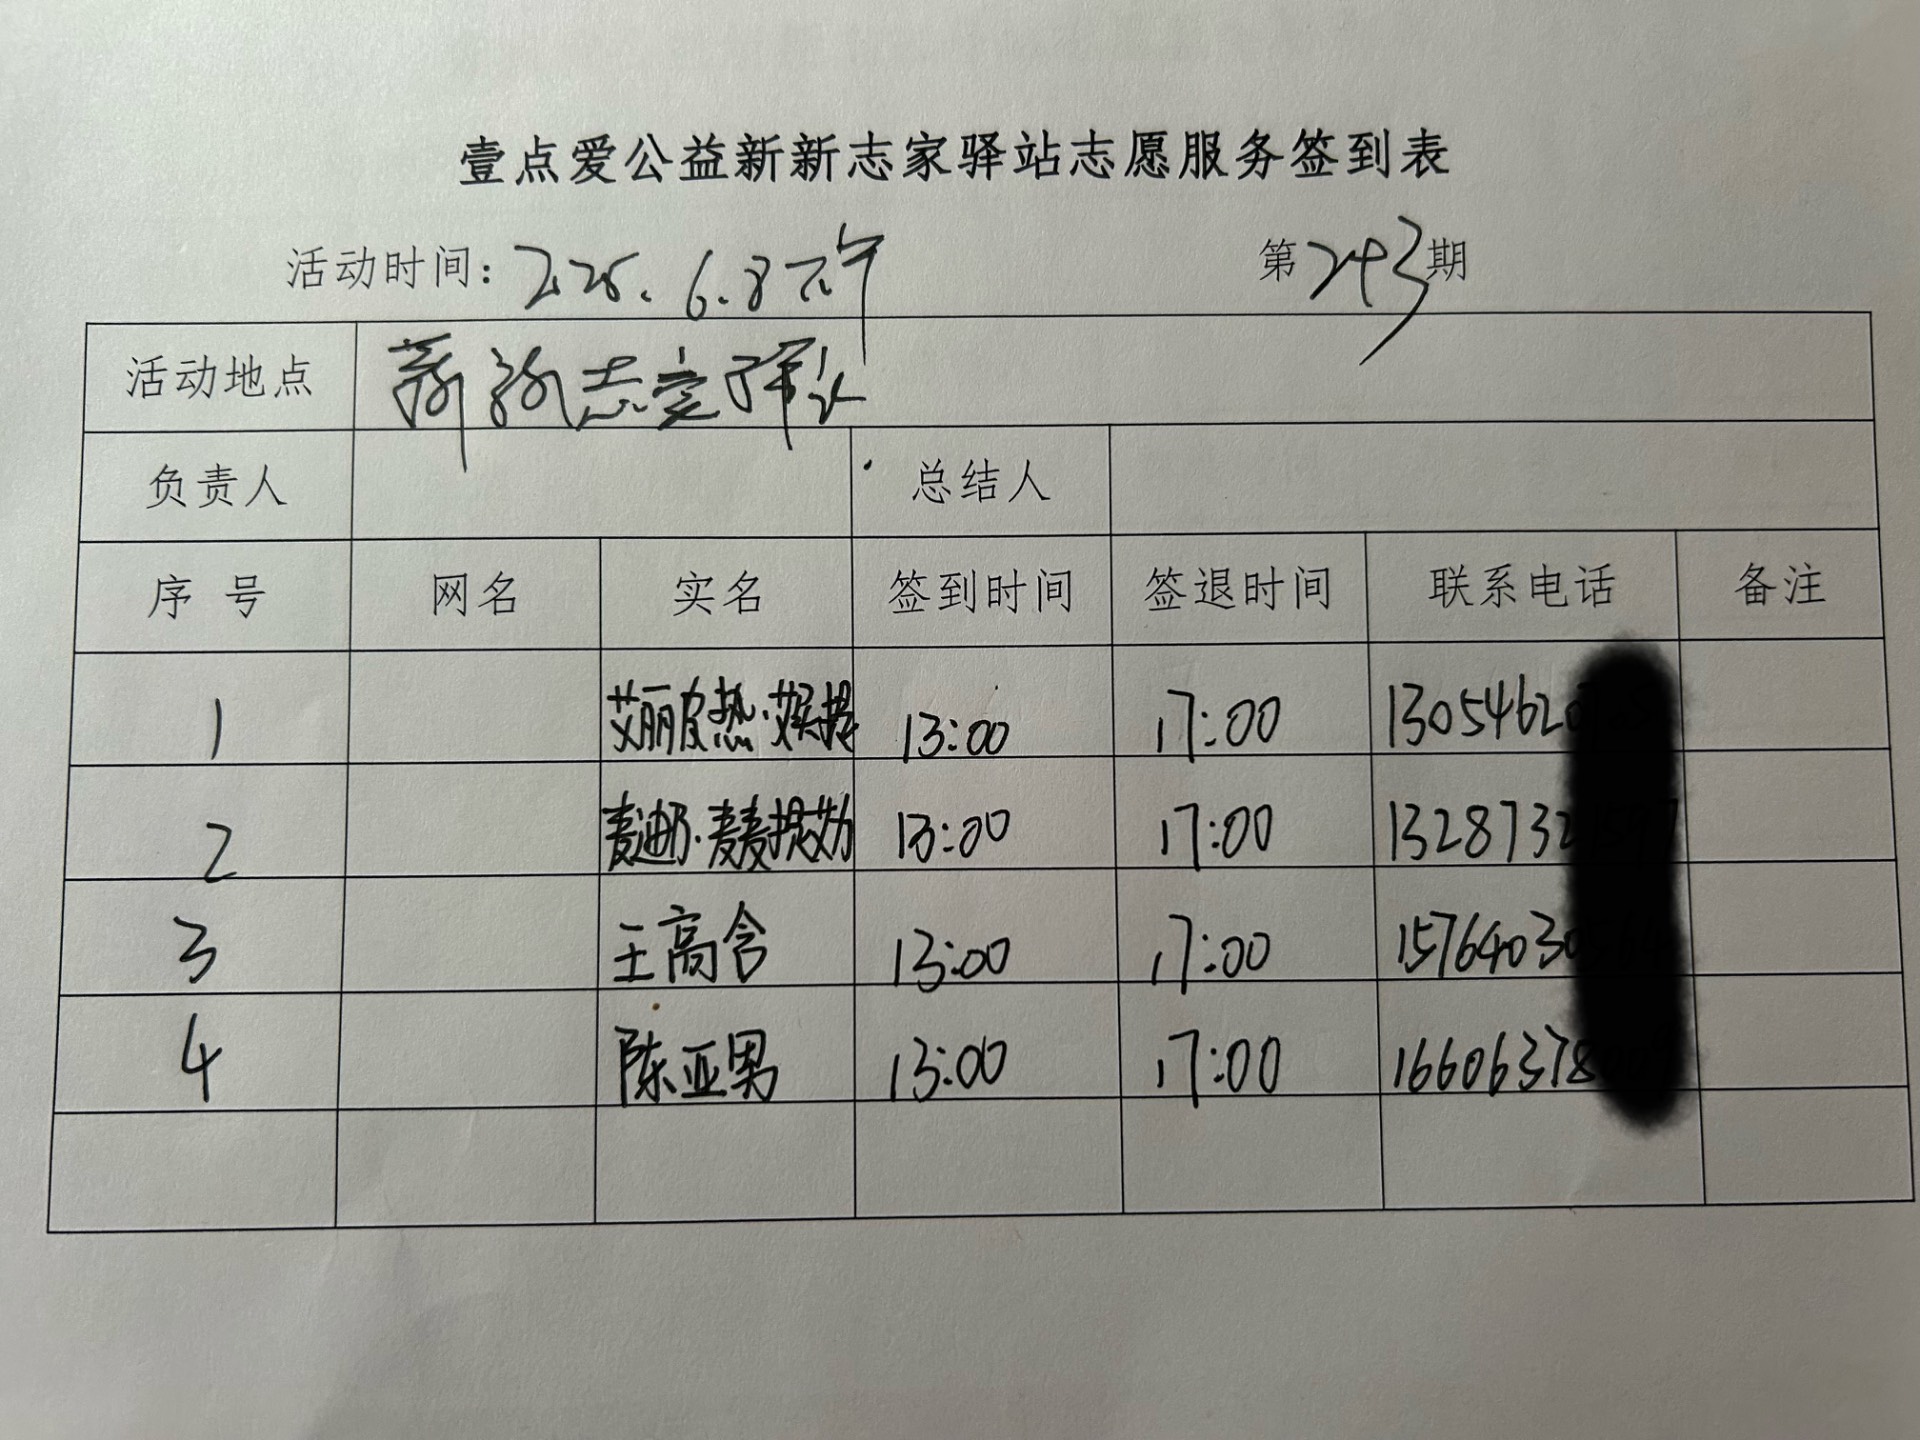 壹点爱公益新新志家驿站志愿服务签到表
活动时间: 2025.6.8下午 第243期
活动地点 新新志家驿站
负责人 总结人
序号 网名 实名 签到时间 签退时间 联系电话 备注
1 艾丽皮热·艾 13:00 17:00 1305462
2 麦迪乃·麦麦提 13:00 17:00 1328732
3 王高含 13:00 17:00 1576403
4 陈亚男 13:00 17:00 16606378